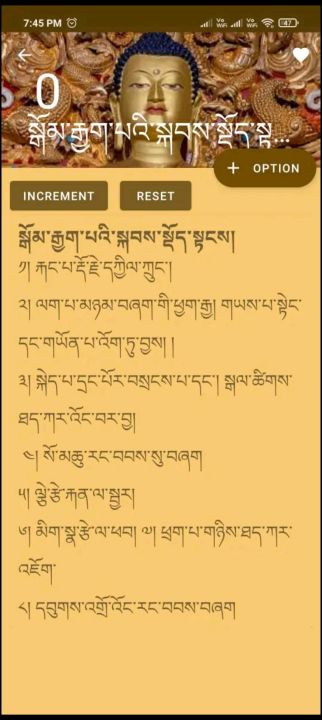 7:45 PM
Vo WiFi Vo WiFi 47
0
སྒོམ་རྒྱག་པའི་སྐབས་སྡོད་སྟ...
+ OPTION
INCREMENT RESET
སྒོམ་རྒྱག་པའི་སྐབས་སྡོད་སྟངས།
༡། རྐང་པ་རྡོ་རྗེ་དཀྱིལ་ཀྲུང་།
༢། ལག་པ་མཉམ་བཞག་གི་ཕྱག་རྒྱ། གཡས་པ་སྟེང་
དང་གཡོན་པ་འོག་ཏུ་བྱས། །
༣། སྐེད་པ་དྲང་པོར་བསྲངས་པ་དང་། སྒལ་ཚིགས་
ཐད་ཀར་འོང་བར་བྱ།
༤། སོ་མཆུ་རང་བབས་སུ་བཞག
༥། ལྕེ་རྩེ་རྐན་ལ་སྦྱར།
༦། མིག་སྣ་རྩེ་ལ་ཕབ། ༧། ཕྲག་པ་གཉིས་ཐད་ཀར་
འཇོག་
༨། དབུགས་འགྲོ་འོང་རང་བབས་བཞག